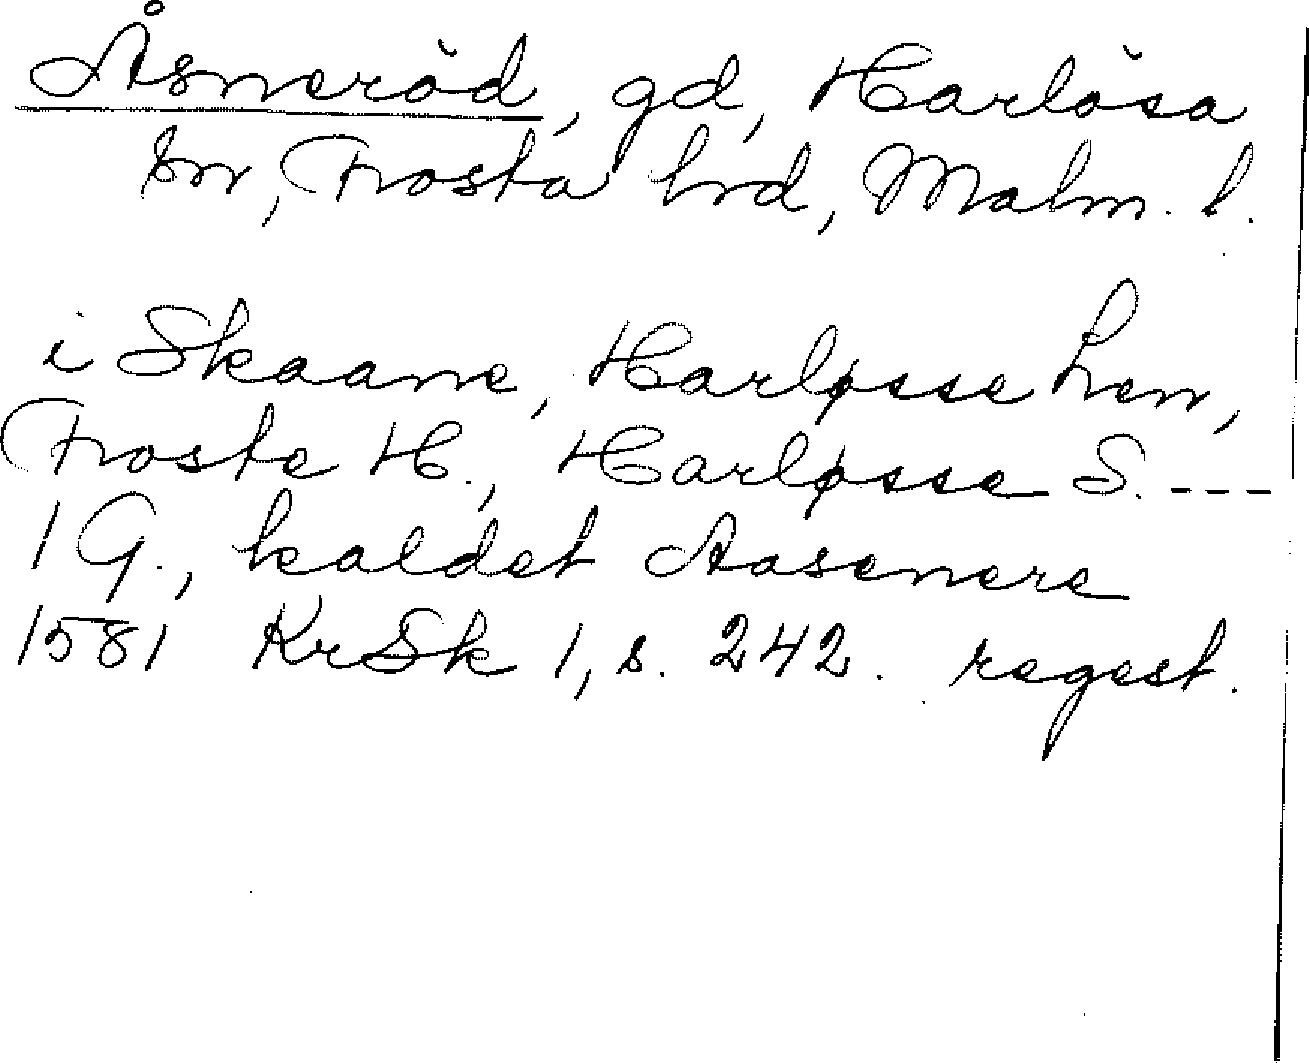 Åsneröd, gd, Harlösa
sn, Frosta hrd, Malm. l.
i Skaane, Harløsse Len,
Froste H., Harløsse S. ---
1 G., kaldet Aasenere
1581 KrSk 1, s. 242. regest.